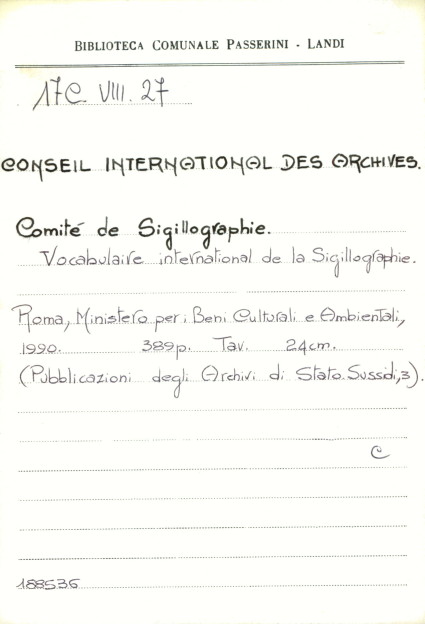 BIBLIOTECA COMUNALE PASSERINI - LANDI
17C. VIII. 27
CONSEIL INTERNATIONAL DES ARCHIVES.
Comité de Sigillographie.
Vocabulaire international de la Sigillographie.
Roma, Ministero per i Beni Culturali e Ambientali,
1990. 389p. Tav. 24cm.
(Pubblicazioni degli Archivi di Stato. Sussidi, 3).
C
188536